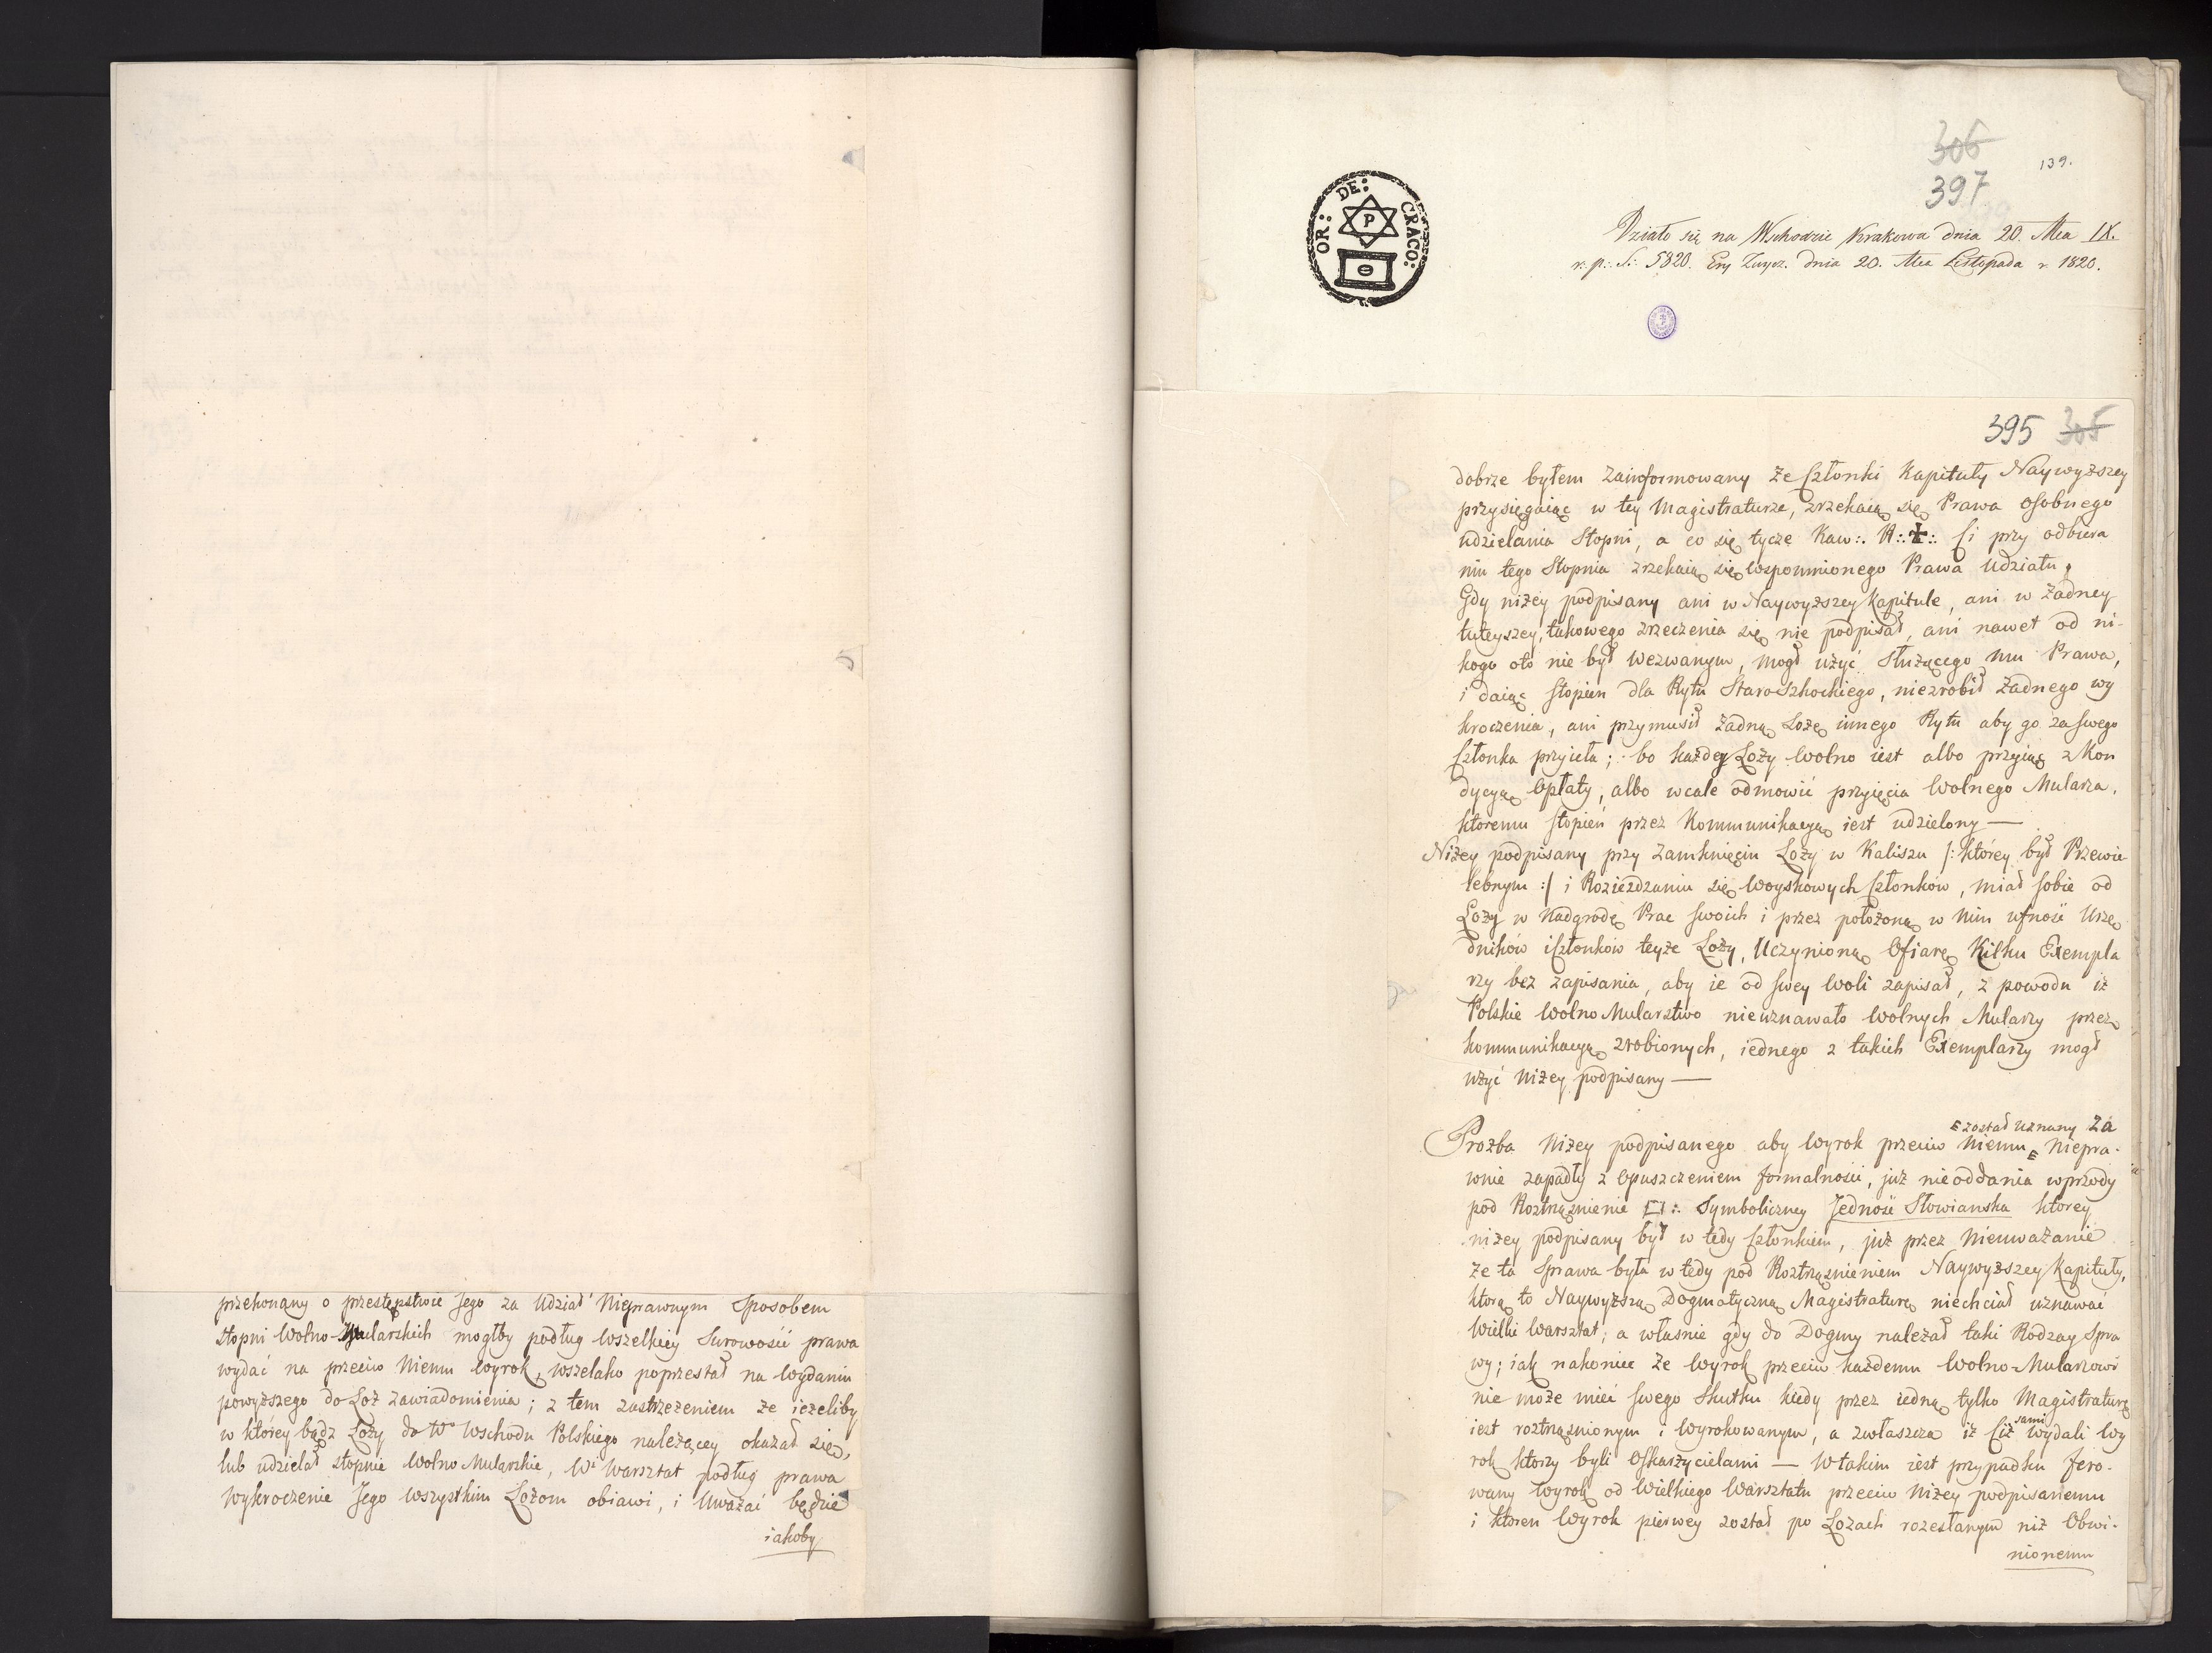 przekonany o przestępstwie Jego za Udział Nieprawnym Sposobem
Stopni Wolno-Mularskich mogłby podług Wszelkiey Surowości prawa
wydać na przeciw Niemu wyrok, wszelako poprzestał na Wydaniu
powyższego do Loż zawiadomienia; z tem zastrzeżeniem że ieżeliby
w którey bądz Loży do Wo Wschodu Polskiego należącey okazał się,
lub udzielał stopnie Wolno Mularskie, Wi Warsztat podług prawa
Wykroczenie Jego Wszystkim Lożom obiawi, i Uważać będzie
iakoby
306
397
139.
OR: DE: CRACO:
P
Działo się na Wschodzie Krakowa dnia 20. Mca IX.
r: p:. S:. 5820. Ery Zwycz. dnia 20. Mca Listopada r. 1820.
395 305
dobrze byłem zainformowany że Członki Kapituły Naywyższey
przysięgaiąc w tey Magistraturze, zrzekaią się Prawa osobnego
udzielania Stopni, a co się tycze Kaw:. R:.✠:. Ci przy odbiera
niu tego Stopnia zrzekaią się wspomnionego Prawa Udziału,
Gdy niżey podpisany ani w Naywyższey Kapitule, ani w żadney
tuteyszey, takowego zrzeczenia się nie podpisał, ani nawet od ni-
kogo oto nie był Wezwanym, mogł użyć Służącego mu Prawa,
i daiąc Stopien dla Rytu Staro-Szkockiego, niezrobił żadnego wy
kroczenia, ani przymusił żadną Lożę innego Rytu aby go za swego
Członka przyieła; bo każdey Loży Wolno iest albo przyiąć z Kon
dycyą Opłaty, albo wcale odmowić przyięcia Wolnego Mularza,
ktoremu Stopień przez Kommunikacyą iest udzielony —
Niżey podpisany przy Zamknięciu Loży w Kaliszu /: którey był Przewie
lebnym :/ i Rozieżdzaniu się Woyskowych Członków, miał sobie od
Loży w Nadgrodę Prac swoich i przez położoną w Nim ufność Urzę
dników i Członków teyże Loży, Uczynioną Ofiarę Kilku Exempla
rzy bez zapisania, aby ie od swey Woli zapisał, z powodu iż
Polskie Wolno Mularstwo nieuznawało Wolnych Mularzy przez
kommunikacyą zrobionych, iednego z takich Exemplarzy mogł
użyć Niżey podpisany —
został uznany za
Prozba Niżey podpisanego aby Wyrok przeciw Niemu Niepra-
wnie zapadły z Opuszczeniem formalności, już nieoddania wprzody
pod Roztrząsnienie □:. Symboliczney Jedność Słowianska ktorey
niżey podpisany był w tedy Członkiem, już przez Nieuważanie
że ta Sprawa była w tedy pod Roztrząsnieniem Naywyższey Kapituły,
ktorą to Naywyższą Dogmatyczną Magistraturę niechciał uznawać
Wielki Warsztat; a właśnie gdy do Dogmy należał taki Rodzay Spra
wy; iak nakoniec że Wyrok przeciw każdemu Wolno-Mularzowi
nie może mieć swego Skutku kiedy przez iedną tylko Magistraturę
iest roztrząsnionym i Wyrokowanym, a zwłaszcza iż Ciż sami wydali Wy
rok ktorzy byli Oskarżycielami — W takim iest przypadku fero-
wany Wyrok od Wielkiego Warsztatu przeciw Niżey podpisanemu
i ktoren Wyrok pierwey został po Lożach rozesłanym niż Obwi-
nionemu